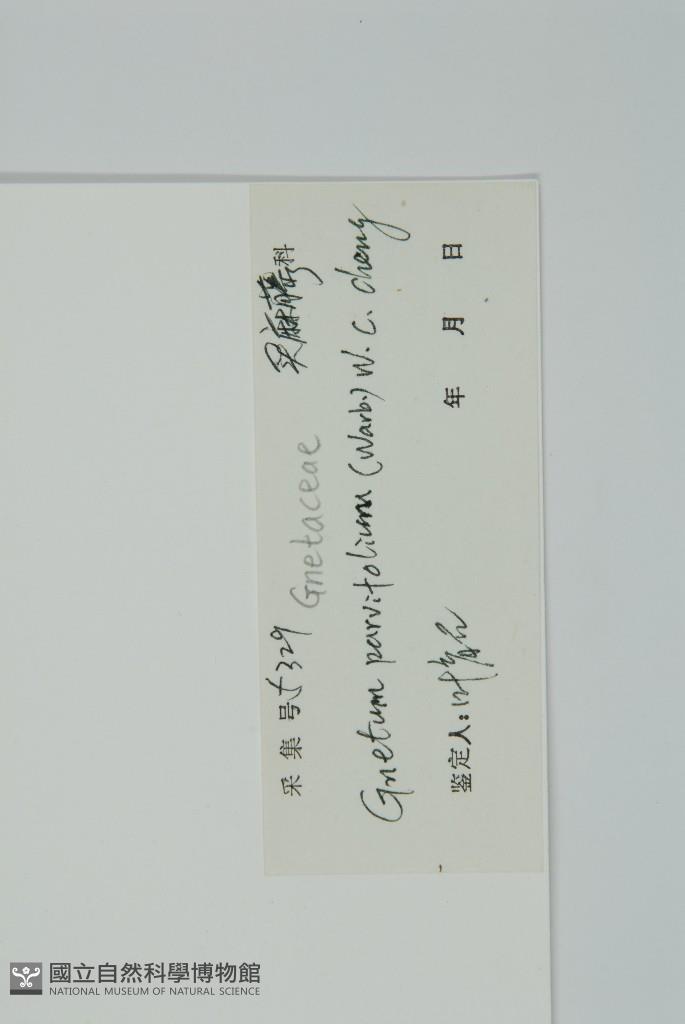 采集号 5329 买麻藤科
Gnetaceae
Gnetum parvifolium (Warb.) W. C. Cheng
鉴定人: 年 月 日
國立自然科學博物館
NATIONAL MUSEUM OF NATURAL SCIENCE